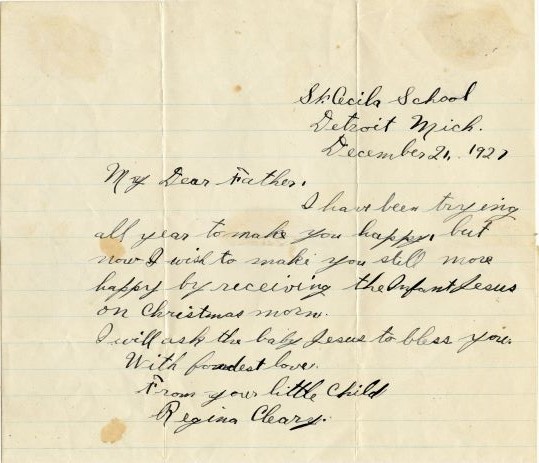 St. Cecila School
Detroit Mich.
December 21, 1927
My Dear Father,
I have been trying
all year to make you happy, but
now I wish to make you still more
happy by receiving the Infant Jesus
on Christmas morn.
I will ask the baby Jesus to bless you.
With fondest love.
From your little Child
Regina Cleary.